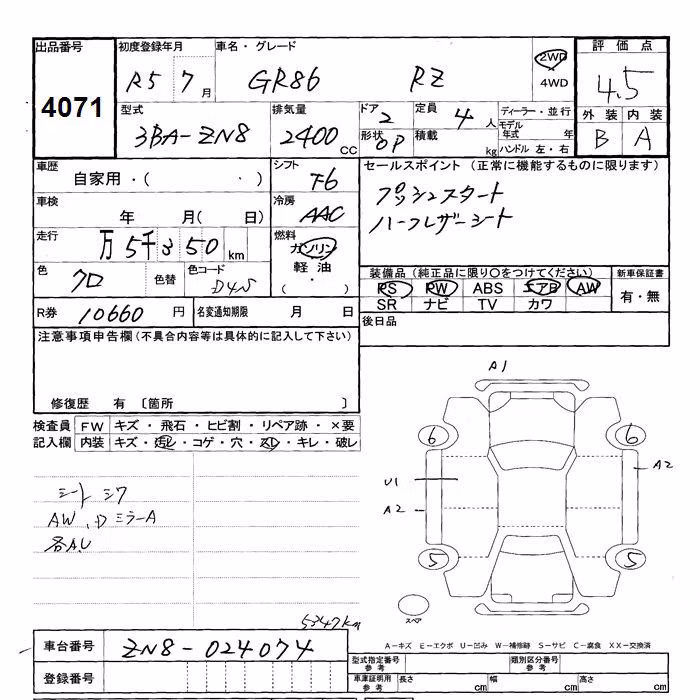 出品番号 初度登録年月 車名・グレード 2WD 評価点
4071 R5 7月 GR86 RZ 4WD 4.5
型式 排気量 ドア 2 定員 4人 ディーラー・並行 外装 内装
3BA-ZN8 2400CC 形状 OP 積載 kg モデル年式 年 ハンドル 左・右 B A
車歴 自家用・( ・ ) シフト F6 セールスポイント (正常に機能するものに限ります)
車検 年 月( 日) 冷房 AAC プッシュスタート
走行 万5千350km 燃料 ガソリン ハーフレザーシート
軽油
( ・ )
色 クロ 色替 色コード D4S 装備品 (純正品に限り○をつけてください) 新車保証書
PS PW ABS エアB AW 有・無
SR ナビ TV カワ
R券 10660円 名変通知期限 月 日 後日品
注意事項申告欄 (不具合内容等は具体的に記入して下さい)
修復歴 有 〔箇所 〕
検査員 FW キズ・飛石・ヒビ割・リペア跡・×要
記入欄 内装 キズ・汚レ・コゲ・穴・スレ・キレ・破レ
A1
6 6
U1 A2
A2
5 5
スペア
シート シワ
AW、DミラーA
各A.U
5347km
車台番号 ZN8-024074
登録番号
A-キズ E-エクボ U-凹み W-補修跡 S-サビ C-腐食 XX-交換済
型式指定番号 参考 類別区分番号 参考
車庫証明用 参考 長さ cm 幅 cm 高さ cm